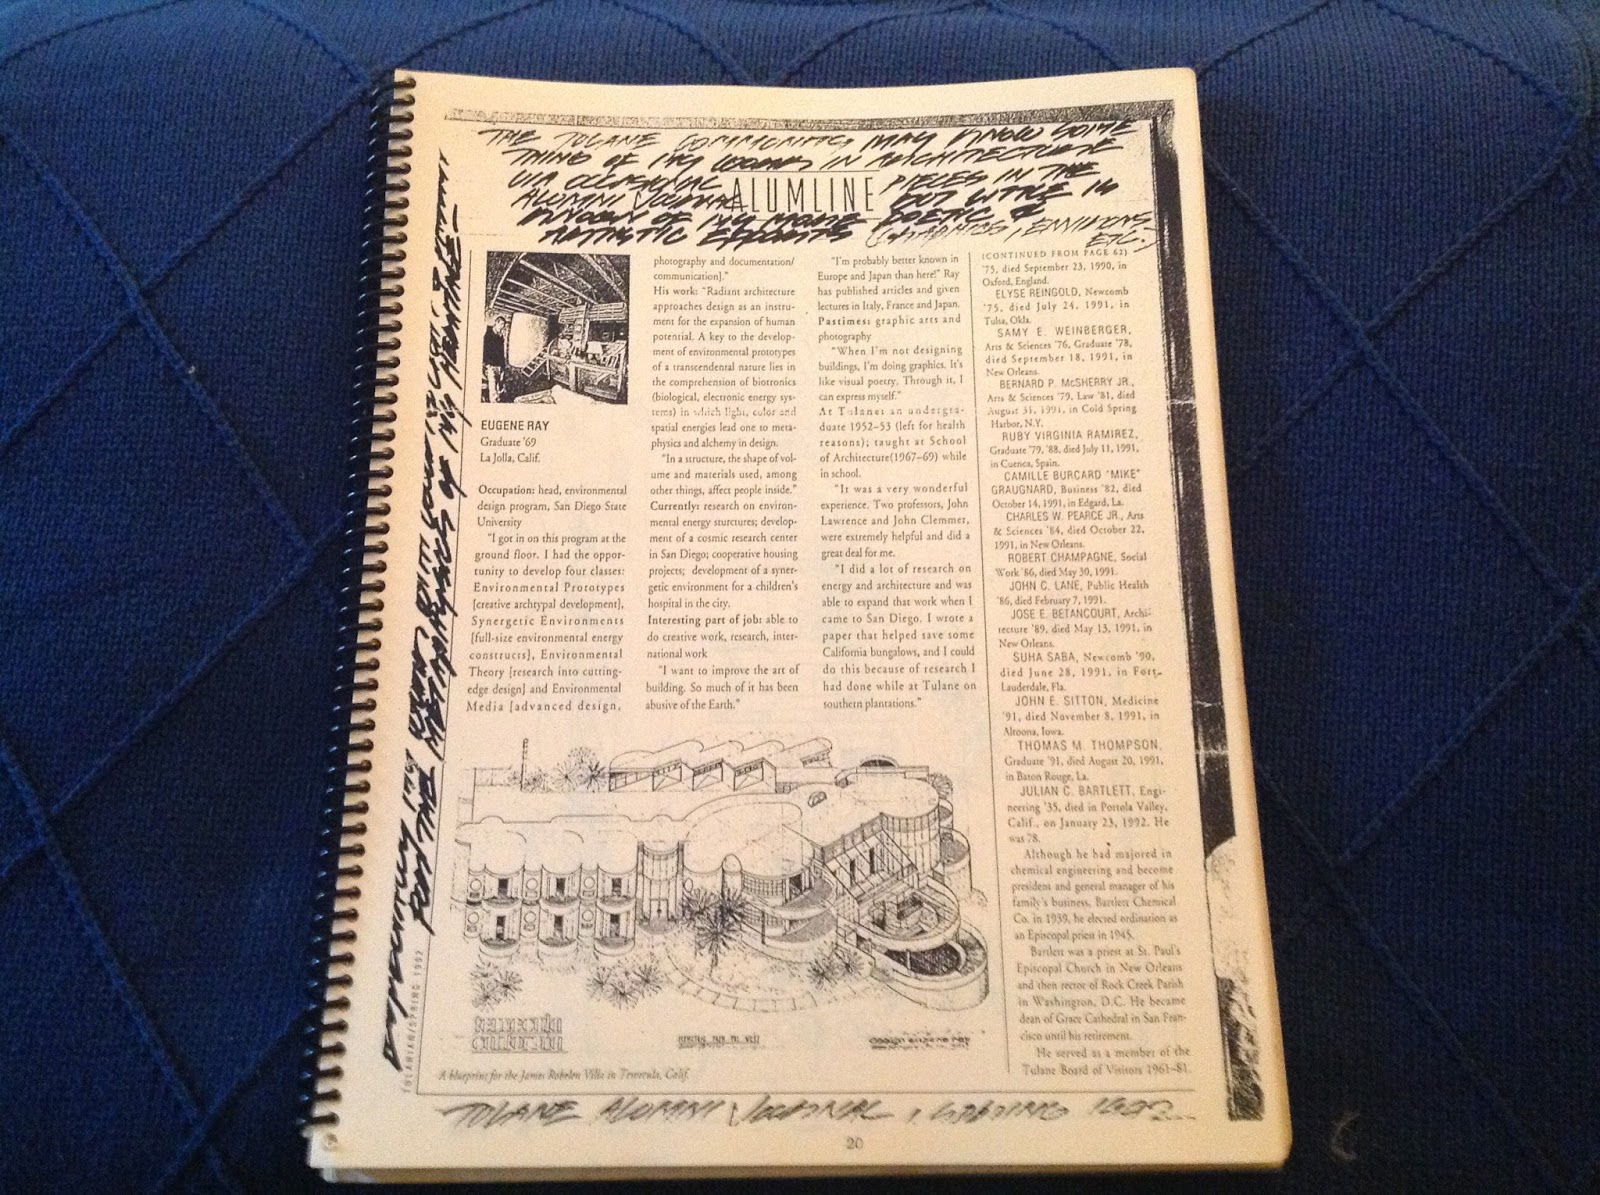 THE TULANE COMMUNITY MAY KNOW SOME
THING OF MY WORKS IN ARCHITECTURE
VIA OCCASIONAL PIECES IN THE
ALUMNI JOURNAL BUT LITTLE IS
KNOWN OF MY MORE POETIC &
ARTISTIC EFFORTS (GRAPHICS, ENVIRONS,
ETC.)
ALUMLINE
EUGENE RAY
Graduate '69
La Jolla, Calif.
Occupation: head, environmental
design program, San Diego State
University
"I got in on this program at the
ground floor. I had the oppor-
tunity to develop four classes:
Environmental Prototypes
[creative archtypal development],
Synergetic Environments
[full-size environmental energy
constructs], Environmental
Theory [research into cutting-
edge design] and Environmental
Media [advanced design,
photography and documentation/
communication]."
His work: "Radiant architecture
approaches design as an instru-
ment for the expansion of human
potential. A key to the develop-
ment of environmental prototypes
of a transcendental nature lies in
the comprehension of biotronics
(biological, electronic energy sys-
tems) in which light, color and
spatial energies lead one to meta-
physics and alchemy in design.
"In a structure, the shape of vol-
ume and materials used, among
other things, affect people inside."
Currently: research on environ-
mental energy sturctures; develop-
ment of a cosmic research center
in San Diego; cooperative housing
projects; development of a syner-
getic environment for a children's
hospital in the city.
Interesting part of job: able to
do creative work, research, inter-
national work
"I want to improve the art of
building. So much of it has been
abusive of the Earth."
"I'm probably better known in
Europe and Japan than here!" Ray
has published articles and given
lectures in Italy, France and Japan.
Pastimes: graphic arts and
photography
"When I'm not designing
buildings, I'm doing graphics. It's
like visual poetry. Through it, I
can express myself."
At Tulane: an undergra-
duate 1952–53 (left for health
reasons); taught at School
of Architecture(1967–69) while
in school.
"It was a very wonderful
experience. Two professors, John
Lawrence and John Clemmer,
were extremely helpful and did a
great deal for me.
"I did a lot of research on
energy and architecture and was
able to expand that work when I
came to San Diego. I wrote a
paper that helped save some
California bungalows, and I could
do this because of research I
had done while at Tulane on
southern plantations."
(CONTINUED FROM PAGE 62)
'75, died September 23, 1990, in
Oxford, England.
ELYSE REINGOLD, Newcomb
'75, died July 24, 1991, in
Tulsa, Okla.
SAMY E. WEINBERGER,
Arts & Sciences '76, Graduate '78,
died September 18, 1991, in
New Orleans.
BERNARD P. McSHERRY JR.,
Arts & Sciences '79, Law '81, died
August 31, 1991, in Cold Spring
Harbor, N.Y.
RUBY VIRGINIA RAMIREZ,
Graduate '79, '88, died July 11, 1991,
in Cuenca, Spain.
CAMILLE BURCARD "MIKE"
GRAUGNARD, Business '82, died
October 14, 1991, in Edgard, La.
CHARLES W. PEARCE JR., Arts
& Sciences '84, died October 22,
1991, in New Orleans.
ROBERT CHAMPAGNE, Social
Work '86, died May 30, 1991.
JOHN C. LANE, Public Health
'86, died February 7, 1991.
JOSE E. BETANCOURT, Archi-
tecture '89, died May 13, 1991, in
New Orleans.
SUHA SABA, Newcomb '90,
died June 28, 1991, in Fort
Lauderdale, Fla.
JOHN E. SITTON, Medicine
'91, died November 8, 1991, in
Altoona, Iowa.
THOMAS M. THOMPSON,
Graduate '91, died August 20, 1991,
in Baton Rouge, La.
JULIAN C. BARTLETT, Engi-
neering '35, died in Portola Valley,
Calif., on January 23, 1992. He
was 78.
Although he had majored in
chemical engineering and become
president and general manager of his
family's business, Bartlett Chemical
Co. in 1939, he elected ordination as
an Episcopal priest in 1945.
Bartlett was a priest at St. Paul's
Episcopal Church in New Orleans
and then rector of Rock Creek Parish
in Washington, D.C. He became
dean of Grace Cathedral in San Fran-
cisco until his retirement.
He served as a member of the
Tulane Board of Visitors 1961–81.
design eugene ray
A blueprint for the James Robelen Villa in Temecula, Calif.
TULANIAN/SPRING 1992
TULANE ALUMNI JOURNAL, SPRING 1992
20